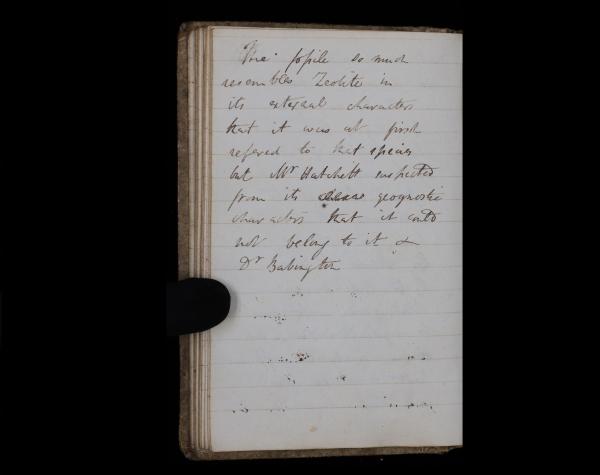 This fossile so much
resembles Zeolite in
its external characters
that it was at first
refered to that species
but Mr Hatchett suspected
from its geognostic
characters that it could
not belong to it &
Dr Babington